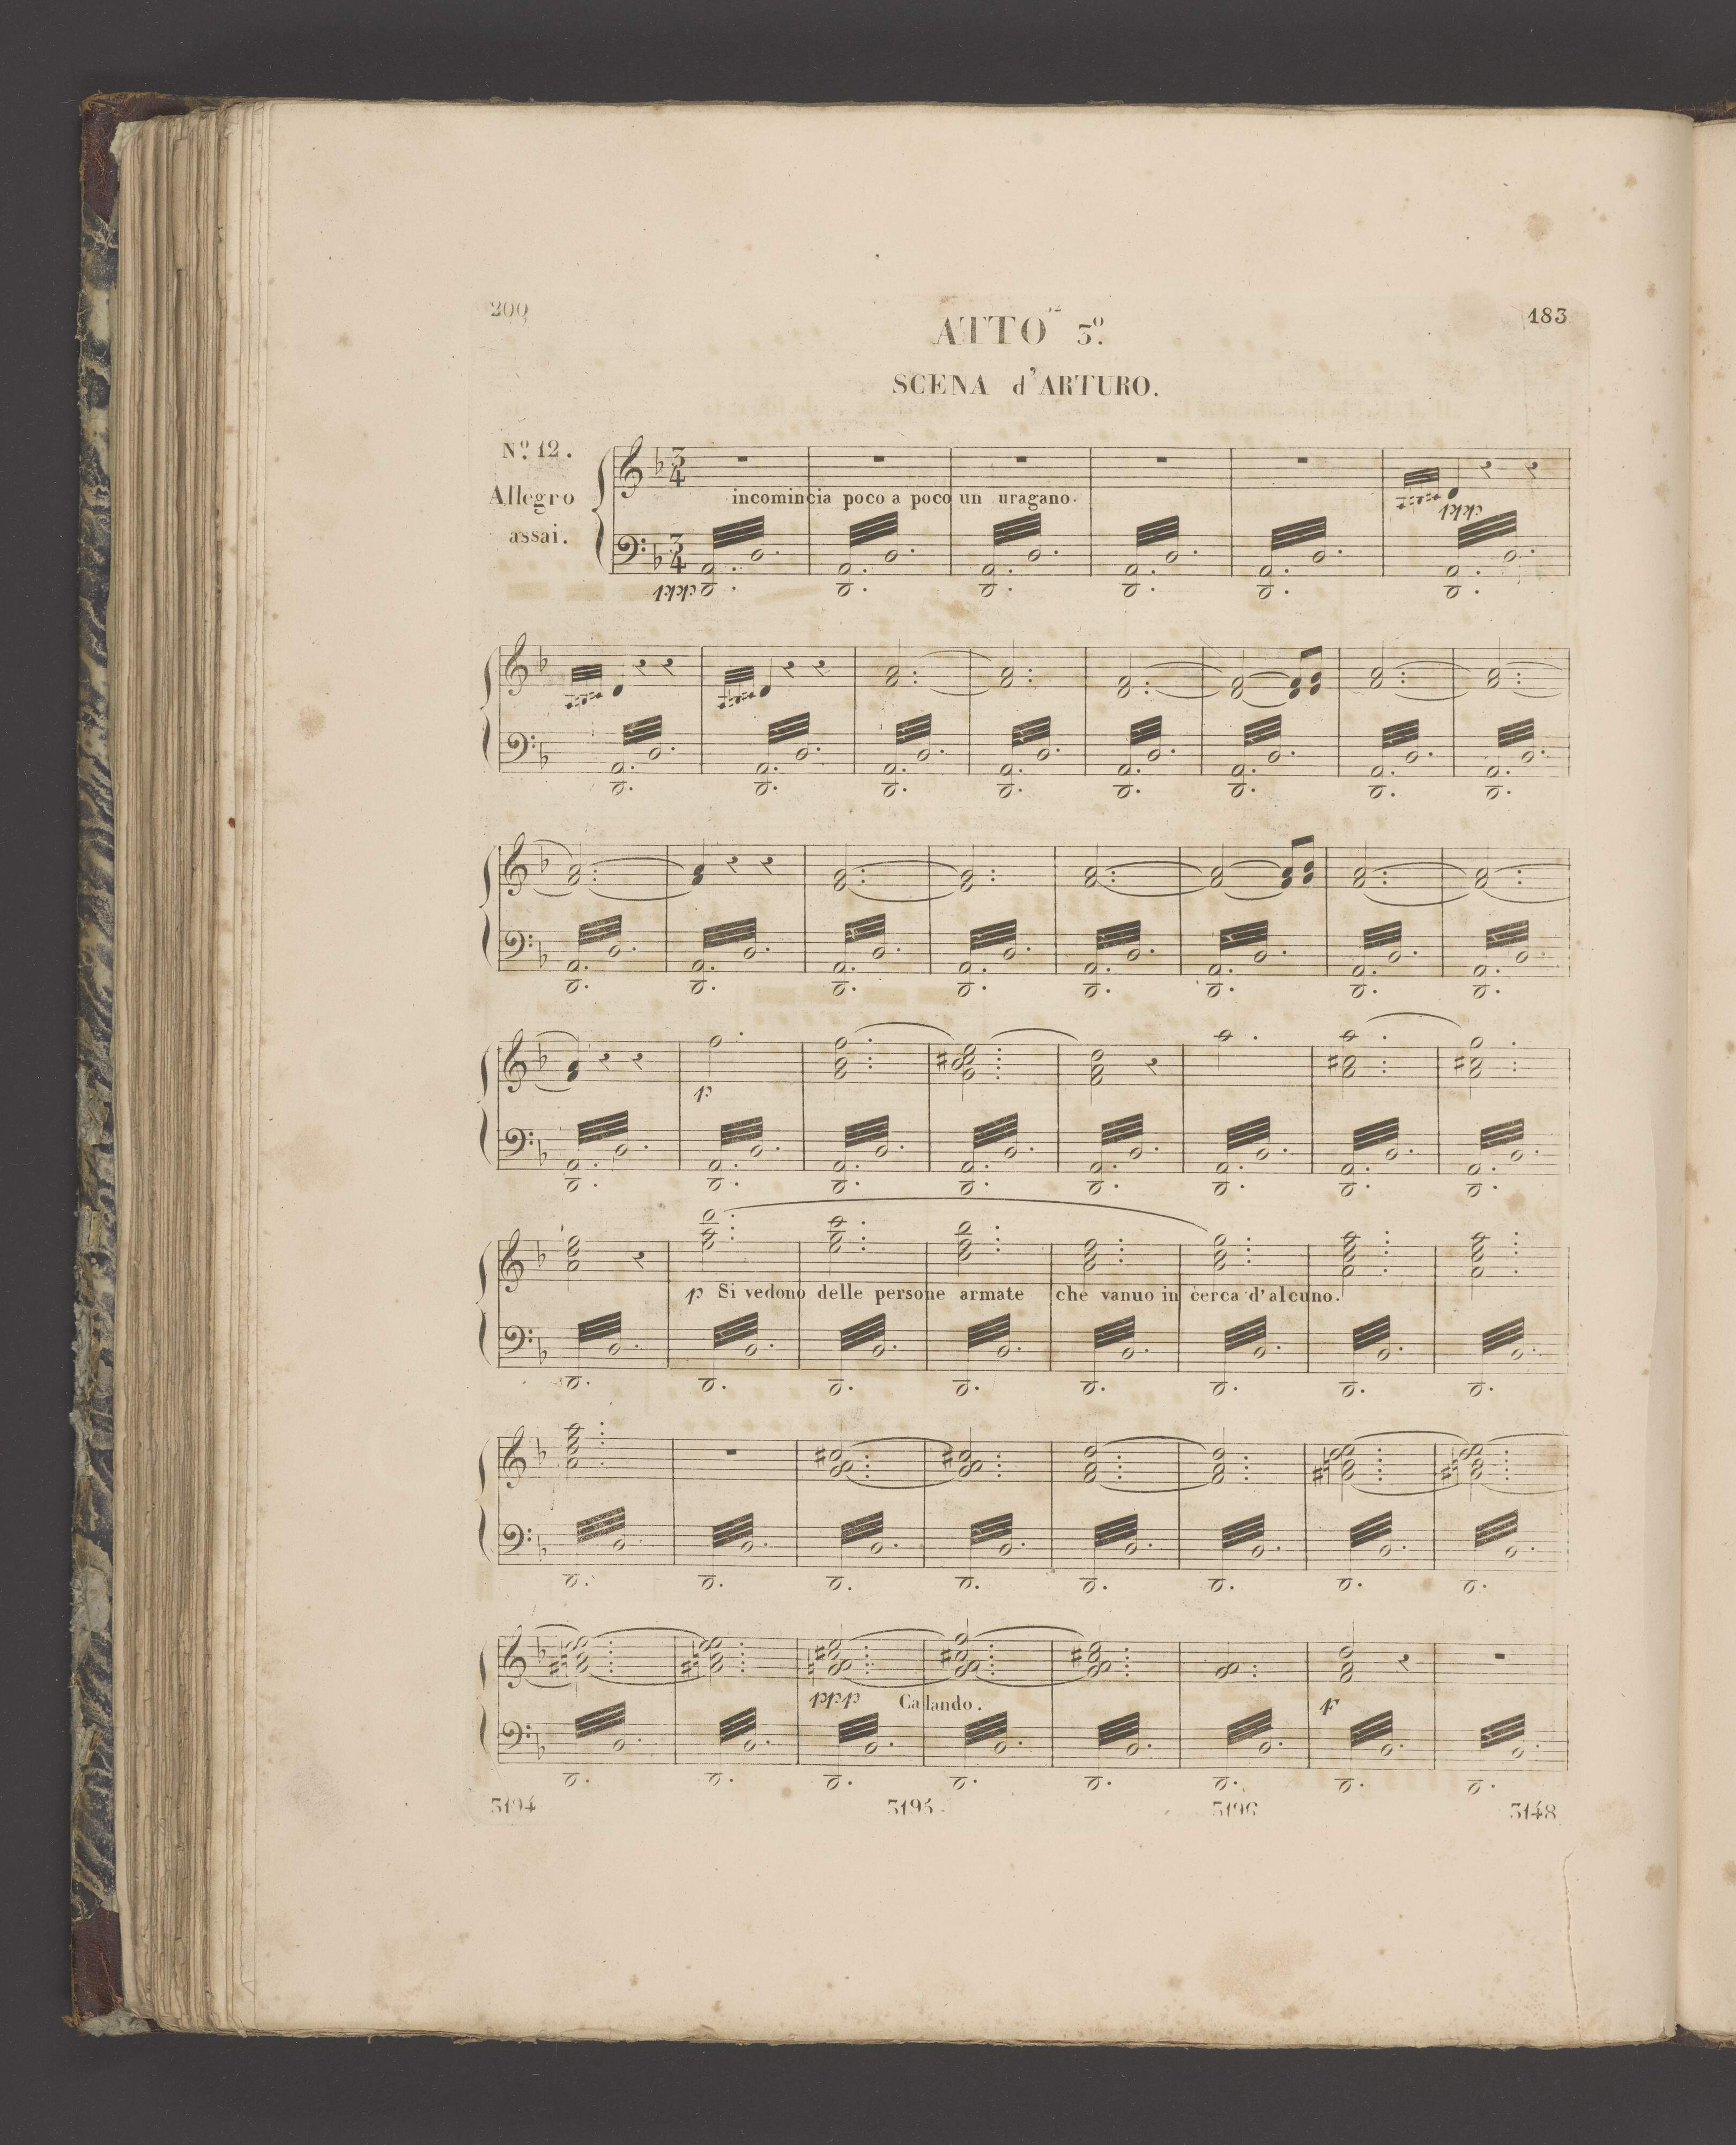 200
183
ATTO 3º.
SCENA d'ARTURO.
Nº. 12.
Allegro
assai.
incomincia poco a poco un uragano.
ppp
ppp
p
p Si vedono delle persone armate che vanuo in cerca d'alcuno.
ppp Calando.
F
3194 3195. 3196 3148